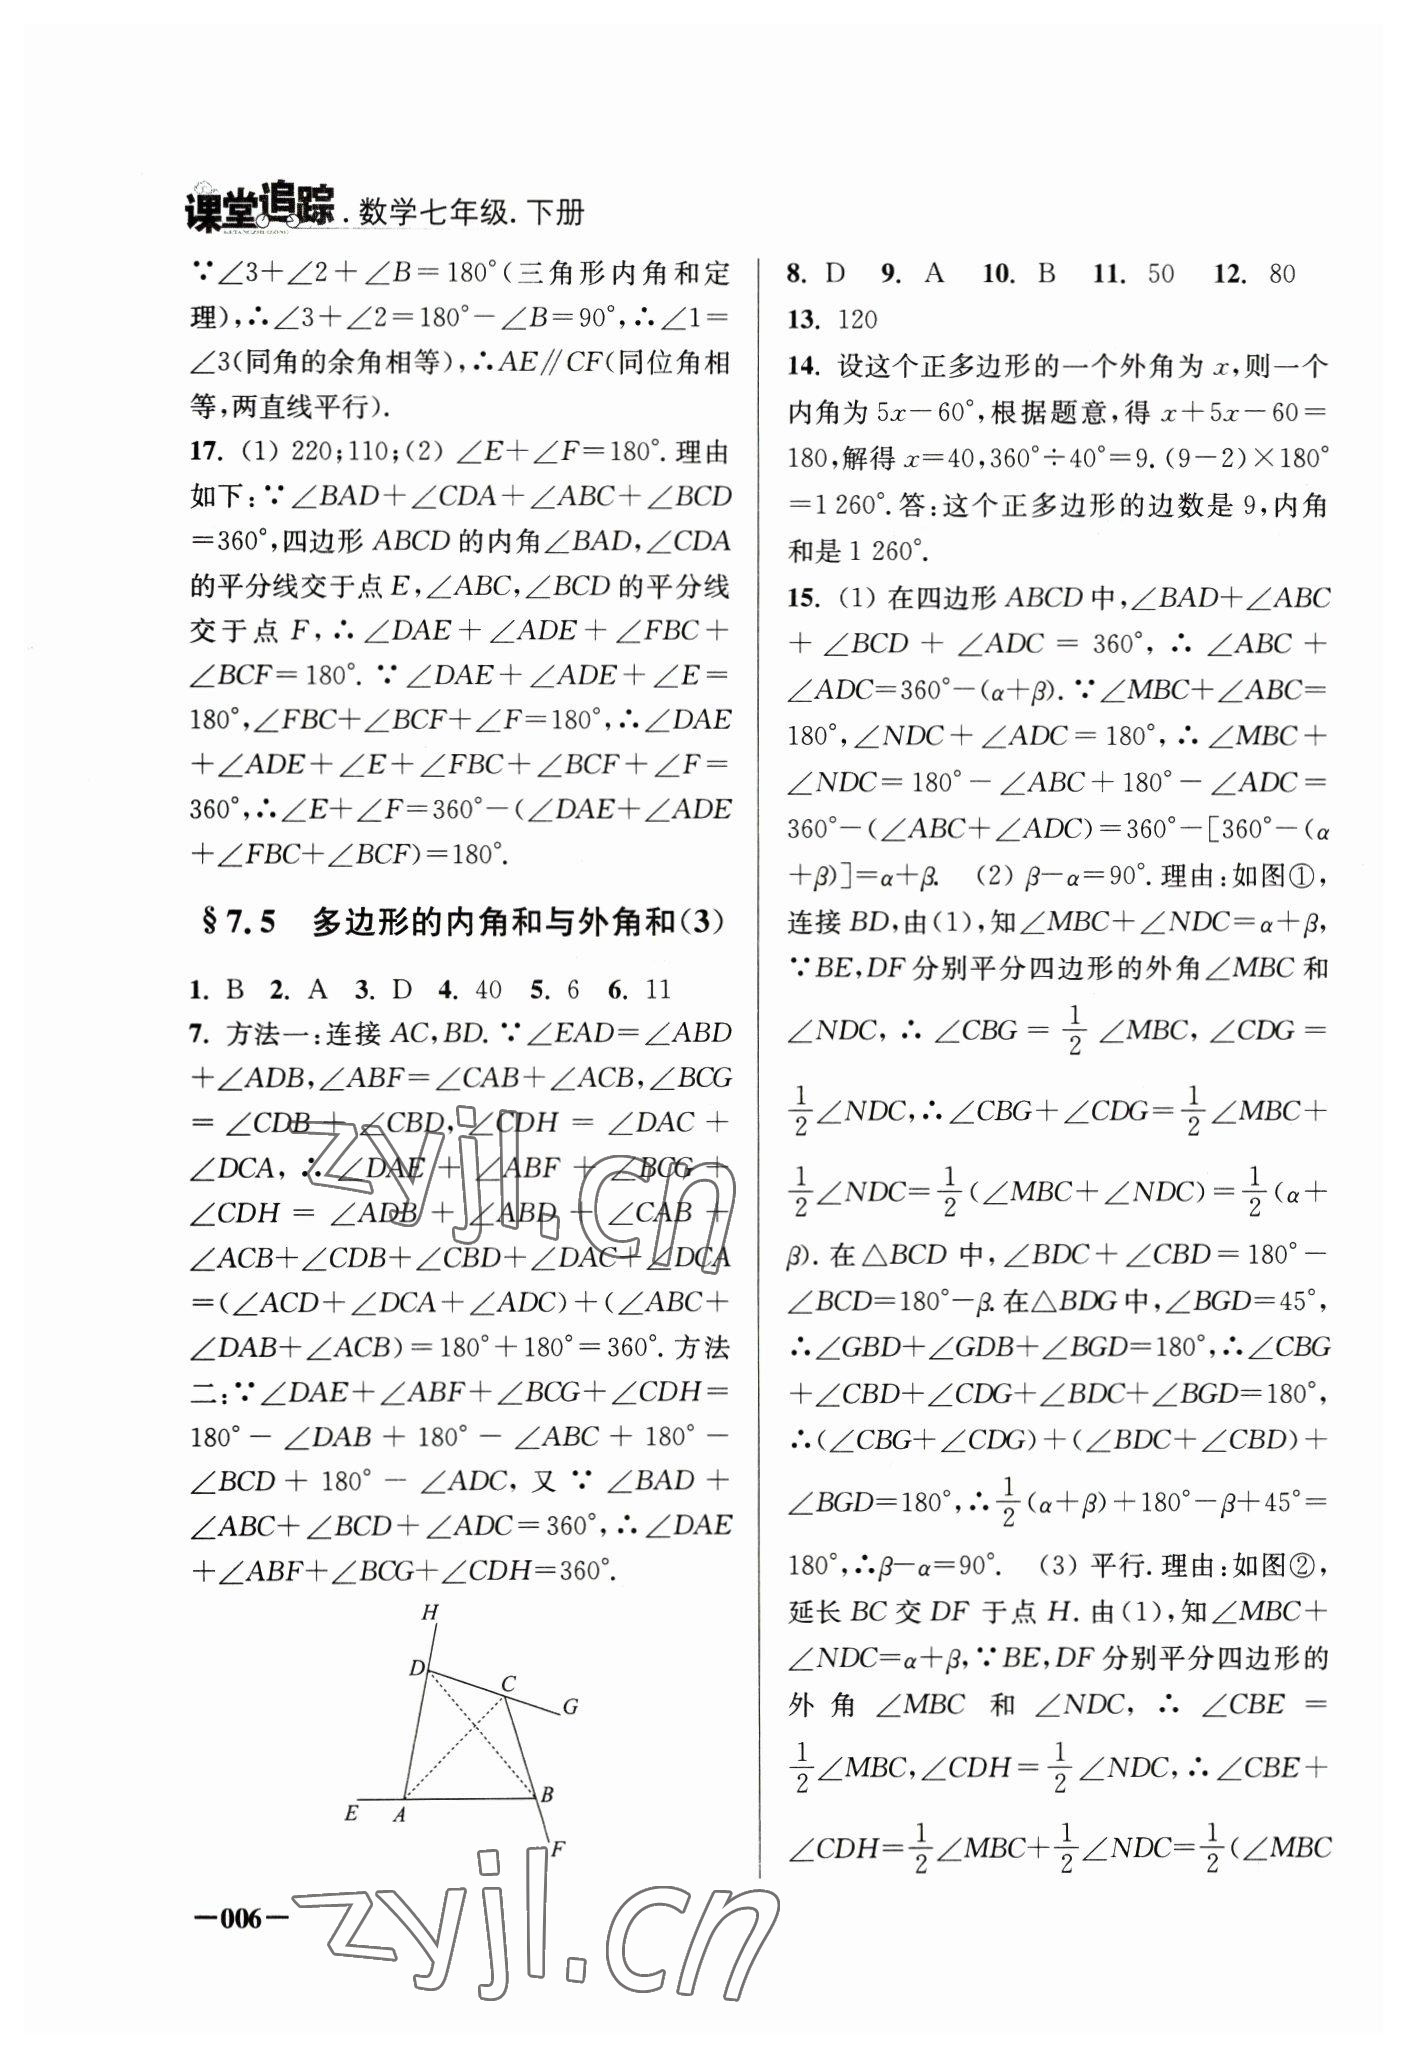 课堂追踪.数学七年级.下册
∵∠3+∠2+∠B=180°(三角形内角和定
理),∴∠3+∠2=180°-∠B=90°,∴∠1=
∠3(同角的余角相等),∴AE∥CF(同位角相
等,两直线平行).
17. (1) 220;110;(2) ∠E+∠F=180°.理由
如下:∵∠BAD+∠CDA+∠ABC+∠BCD
=360°,四边形 ABCD 的内角∠BAD,∠CDA
的平分线交于点 E,∠ABC,∠BCD 的平分线
交于点 F,∴∠DAE+∠ADE+∠FBC+
∠BCF=180°.∵∠DAE+∠ADE+∠E=
180°,∠FBC+∠BCF+∠F=180°,∴∠DAE
+∠ADE+∠E+∠FBC+∠BCF+∠F=
360°,∴∠E+∠F=360°-(∠DAE+∠ADE
+∠FBC+∠BCF)=180°.
§7.5 多边形的内角和与外角和(3)
1. B 2. A 3. D 4. 40 5. 6 6. 11
7. 方法一:连接 AC,BD.∵∠EAD=∠ABD
+∠ADB,∠ABF=∠CAB+∠ACB,∠BCG
=∠CDB+∠CBD,∠CDH=∠DAC+
∠DCA,∴∠DAE+∠ABF+∠BCG+
∠CDH=∠ADB+∠ABD+∠CAB+
∠ACB+∠CDB+∠CBD+∠DAC+∠DCA
=(∠ACD+∠DCA+∠ADC)+(∠ABC+
∠DAB+∠ACB)=180°+180°=360°.方法
二:∵∠DAE+∠ABF+∠BCG+∠CDH=
180°-∠DAB+180°-∠ABC+180°-
∠BCD+180°-∠ADC,又∵∠BAD+
∠ABC+∠BCD+∠ADC=360°,∴∠DAE
+∠ABF+∠BCG+∠CDH=360°.
H
D
C
G
E
A
B
F
—006—
8. D 9. A 10. B 11. 50 12. 80
13. 120
14. 设这个正多边形的一个外角为 x,则一个
内角为 5x-60°,根据题意,得 x+5x-60=
180,解得 x=40,360°÷40°=9.(9-2)×180°
=1 260°.答:这个正多边形的边数是 9,内角
和是 1 260°.
15. (1) 在四边形 ABCD 中,∠BAD+∠ABC
+∠BCD+∠ADC=360°,∴∠ABC+
∠ADC=360°-(α+β).∵∠MBC+∠ABC=
180°,∠NDC+∠ADC=180°,∴∠MBC+
∠NDC=180°-∠ABC+180°-∠ADC=
360°-(∠ABC+∠ADC)=360°-[360°-(α
+β)]=α+β. (2) β-α=90°.理由:如图①,
连接 BD,由(1),知∠MBC+∠NDC=α+β,
∵BE,DF 分别平分四边形的外角∠MBC 和
∠NDC,∴∠CBG=1/2∠MBC,∠CDG=
1/2∠NDC,∴∠CBG+∠CDG=1/2∠MBC+
1/2∠NDC=1/2(∠MBC+∠NDC)=1/2(α+
β).在△BCD 中,∠BDC+∠CBD=180°-
∠BCD=180°-β.在△BDG 中,∠BGD=45°,
∴∠GBD+∠GDB+∠BGD=180°,∴∠CBG
+∠CBD+∠CDG+∠BDC+∠BGD=180°,
∴(∠CBG+∠CDG)+(∠BDC+∠CBD)+
∠BGD=180°,∴1/2(α+β)+180°-β+45°=
180°,∴β-α=90°. (3) 平行.理由:如图②,
延长 BC 交 DF 于点 H.由(1),知∠MBC+
∠NDC=α+β,∵BE,DF 分别平分四边形的
外角∠MBC 和∠NDC,∴∠CBE=
1/2∠MBC,∠CDH=1/2∠NDC,∴∠CBE+
∠CDH=1/2∠MBC+1/2∠NDC=1/2(∠MBC
zyjl.cn
zyjl.cn